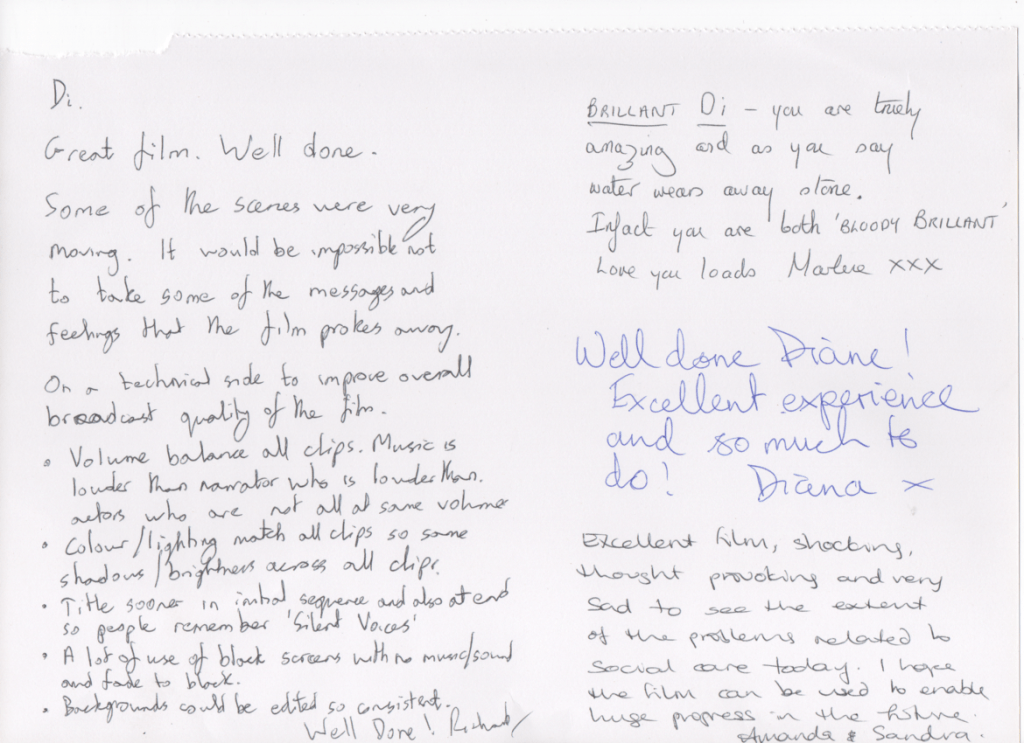 Di.
Great film. Well done.
Some of the scenes were very
moving. It would be impossible not
to take some of the messages and
feelings that the film prokes away.
On a technical side to improve overall
broadcast quality of the film.
• Volume balance all clips. Music is
louder than narrator who is louder than.
actors who are not all at same volume
• Colour/lighting match all clips so same
shadows/brightness across all clips.
• Title sooner in initial sequence and also at end
so people remember 'Silent Voices'
• A lot of use of black screens with no music/sound
and fade to black.
• Backgrounds could be edited so consistent.
Well Done! Richard
BRILLANT Di - you are truely
amazing and as you say
water wears away stone.
Infact you are both 'BLOODY BRILLANT'
Love you loads Marlene xxx
Well done Diane!
Excellent experience
and so much to
do! Diana x
Excellent film, shocking,
thought provoking and very
sad to see the extent
of the problems related to
social care today. I hope
the film can be used to enable
huge progress in the future.
Amanda & Sandra.